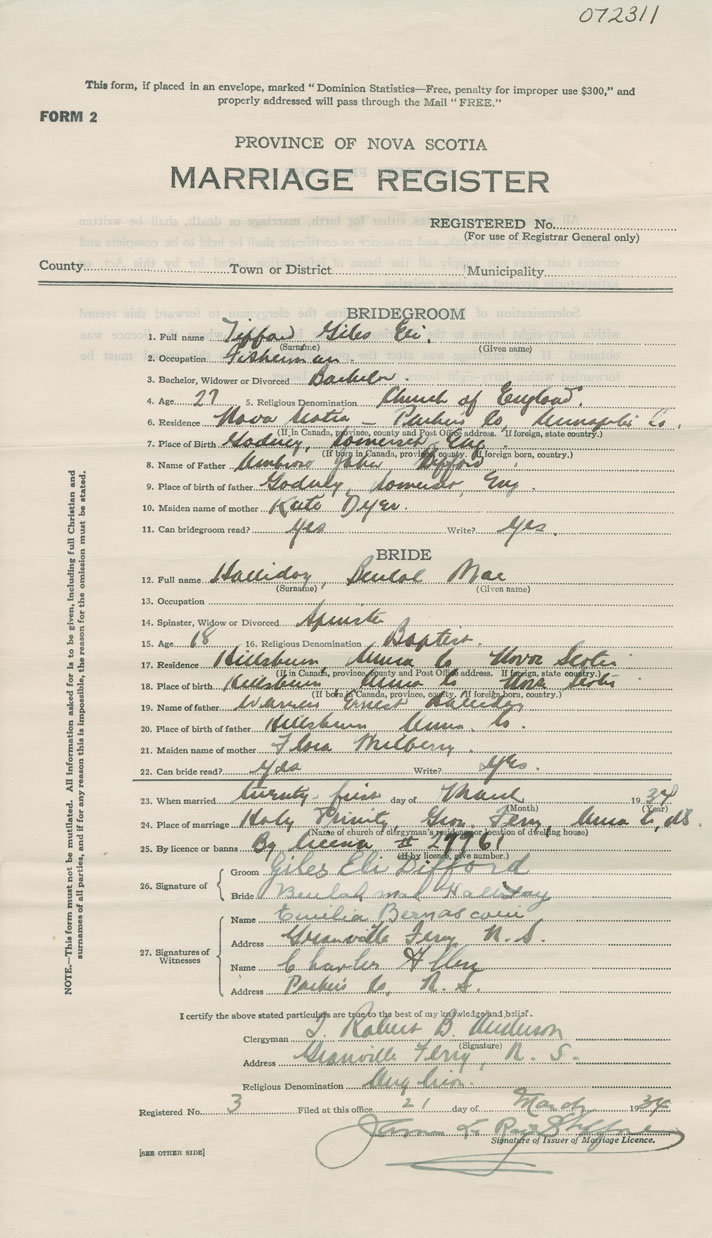 072311
This form, if placed in an envelope, marked "Dominion Statistics—Free, penalty for improper use $300," and
properly addressed will pass through the Mail "FREE."
FORM 2
PROVINCE OF NOVA SCOTIA
MARRIAGE REGISTER
REGISTERED No.
(For use of Registrar General only)
County Town or District Municipality
BRIDEGROOM
1. Full name Giles Eli.
(Surname) (Given name)
2. Occupation Fisherman.
3. Bachelor, Widower or Divorced Bachelor.
4. Age 27 5. Religious Denomination Church of England.
6. Residence Nova Scotia — Parkers Co, Annapolis Co.
(If in Canada, province, county and Post Office address. If foreign, state country.)
7. Place of Birth Godney, Somerset, Eng
(If born in Canada, province, county. If foreign born, country.)
8. Name of Father Ambrose John Difford
9. Place of birth of father Godney, Somerset, Eng.
10. Maiden name of mother Kate Dyer.
11. Can bridegroom read? Yes Write? Yes.
BRIDE
12. Full name Halliday, Beulah Mae
(Surname) (Given name)
13. Occupation
14. Spinster, Widow or Divorced Spinster
15. Age 18 16. Religious Denomination Baptist.
17. Residence Hillsburn, Anna Co Nova Scotia
(If in Canada, province, county and Post Office address. If foreign, state country.)
18. Place of birth Hillsburn, Anna Co Nova Scotia
(If born in Canada, province, county. If foreign born, country.)
19. Name of father Warren Ernest Halliday
20. Place of birth of father Hillsburn Anna. Co.
21. Maiden name of mother Flora Milberry.
22. Can bride read? Yes Write? Yes.
23. When married twenty-first day of March 1934
(Month) (Year)
24. Place of marriage Holy Trinity, Gran. Ferry, Anna Co, N.S.
(Name of church or clergyman's residence or location of dwelling house)
25. By licence or banns By licence # 27761
(If by licence, give number.)
26. Signature of
Groom Giles Eli Difford
Bride Beulah mae Halliday
27. Signatures of Witnesses
Name Emilia Bernasconi
Address Granville Ferry N.S.
Name Charles
Address Parkers Co, N.S.
I certify the above stated particulars are true to the best of my knowledge and belief.
Clergyman J. Robert B. Anderson
(Signature)
Address Granville Ferry, N.S.
Religious Denomination Anglican.
Registered No. 3 Filed at this office 21 day of March 1934
Signature of Issuer of Marriage Licence.
[SEE OTHER SIDE]
NOTE.—This form must not be mutilated. All information asked for is to be given, including full Christian and
surnames of all parties, and if for any reason this is impossible, the reason for the omission must be stated.